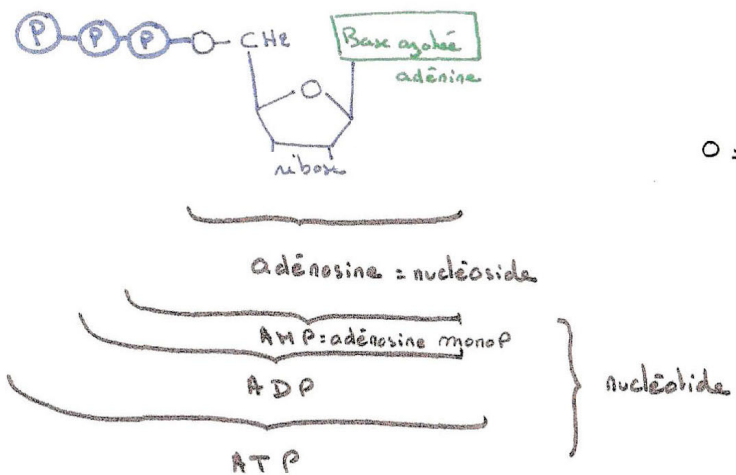 P-P-P-O-CH2 Base azotée
adénine
O
ribose
O =
adénosine = nucléoside
AMP = adénosine monoP
ADP
nucléotide
ATP